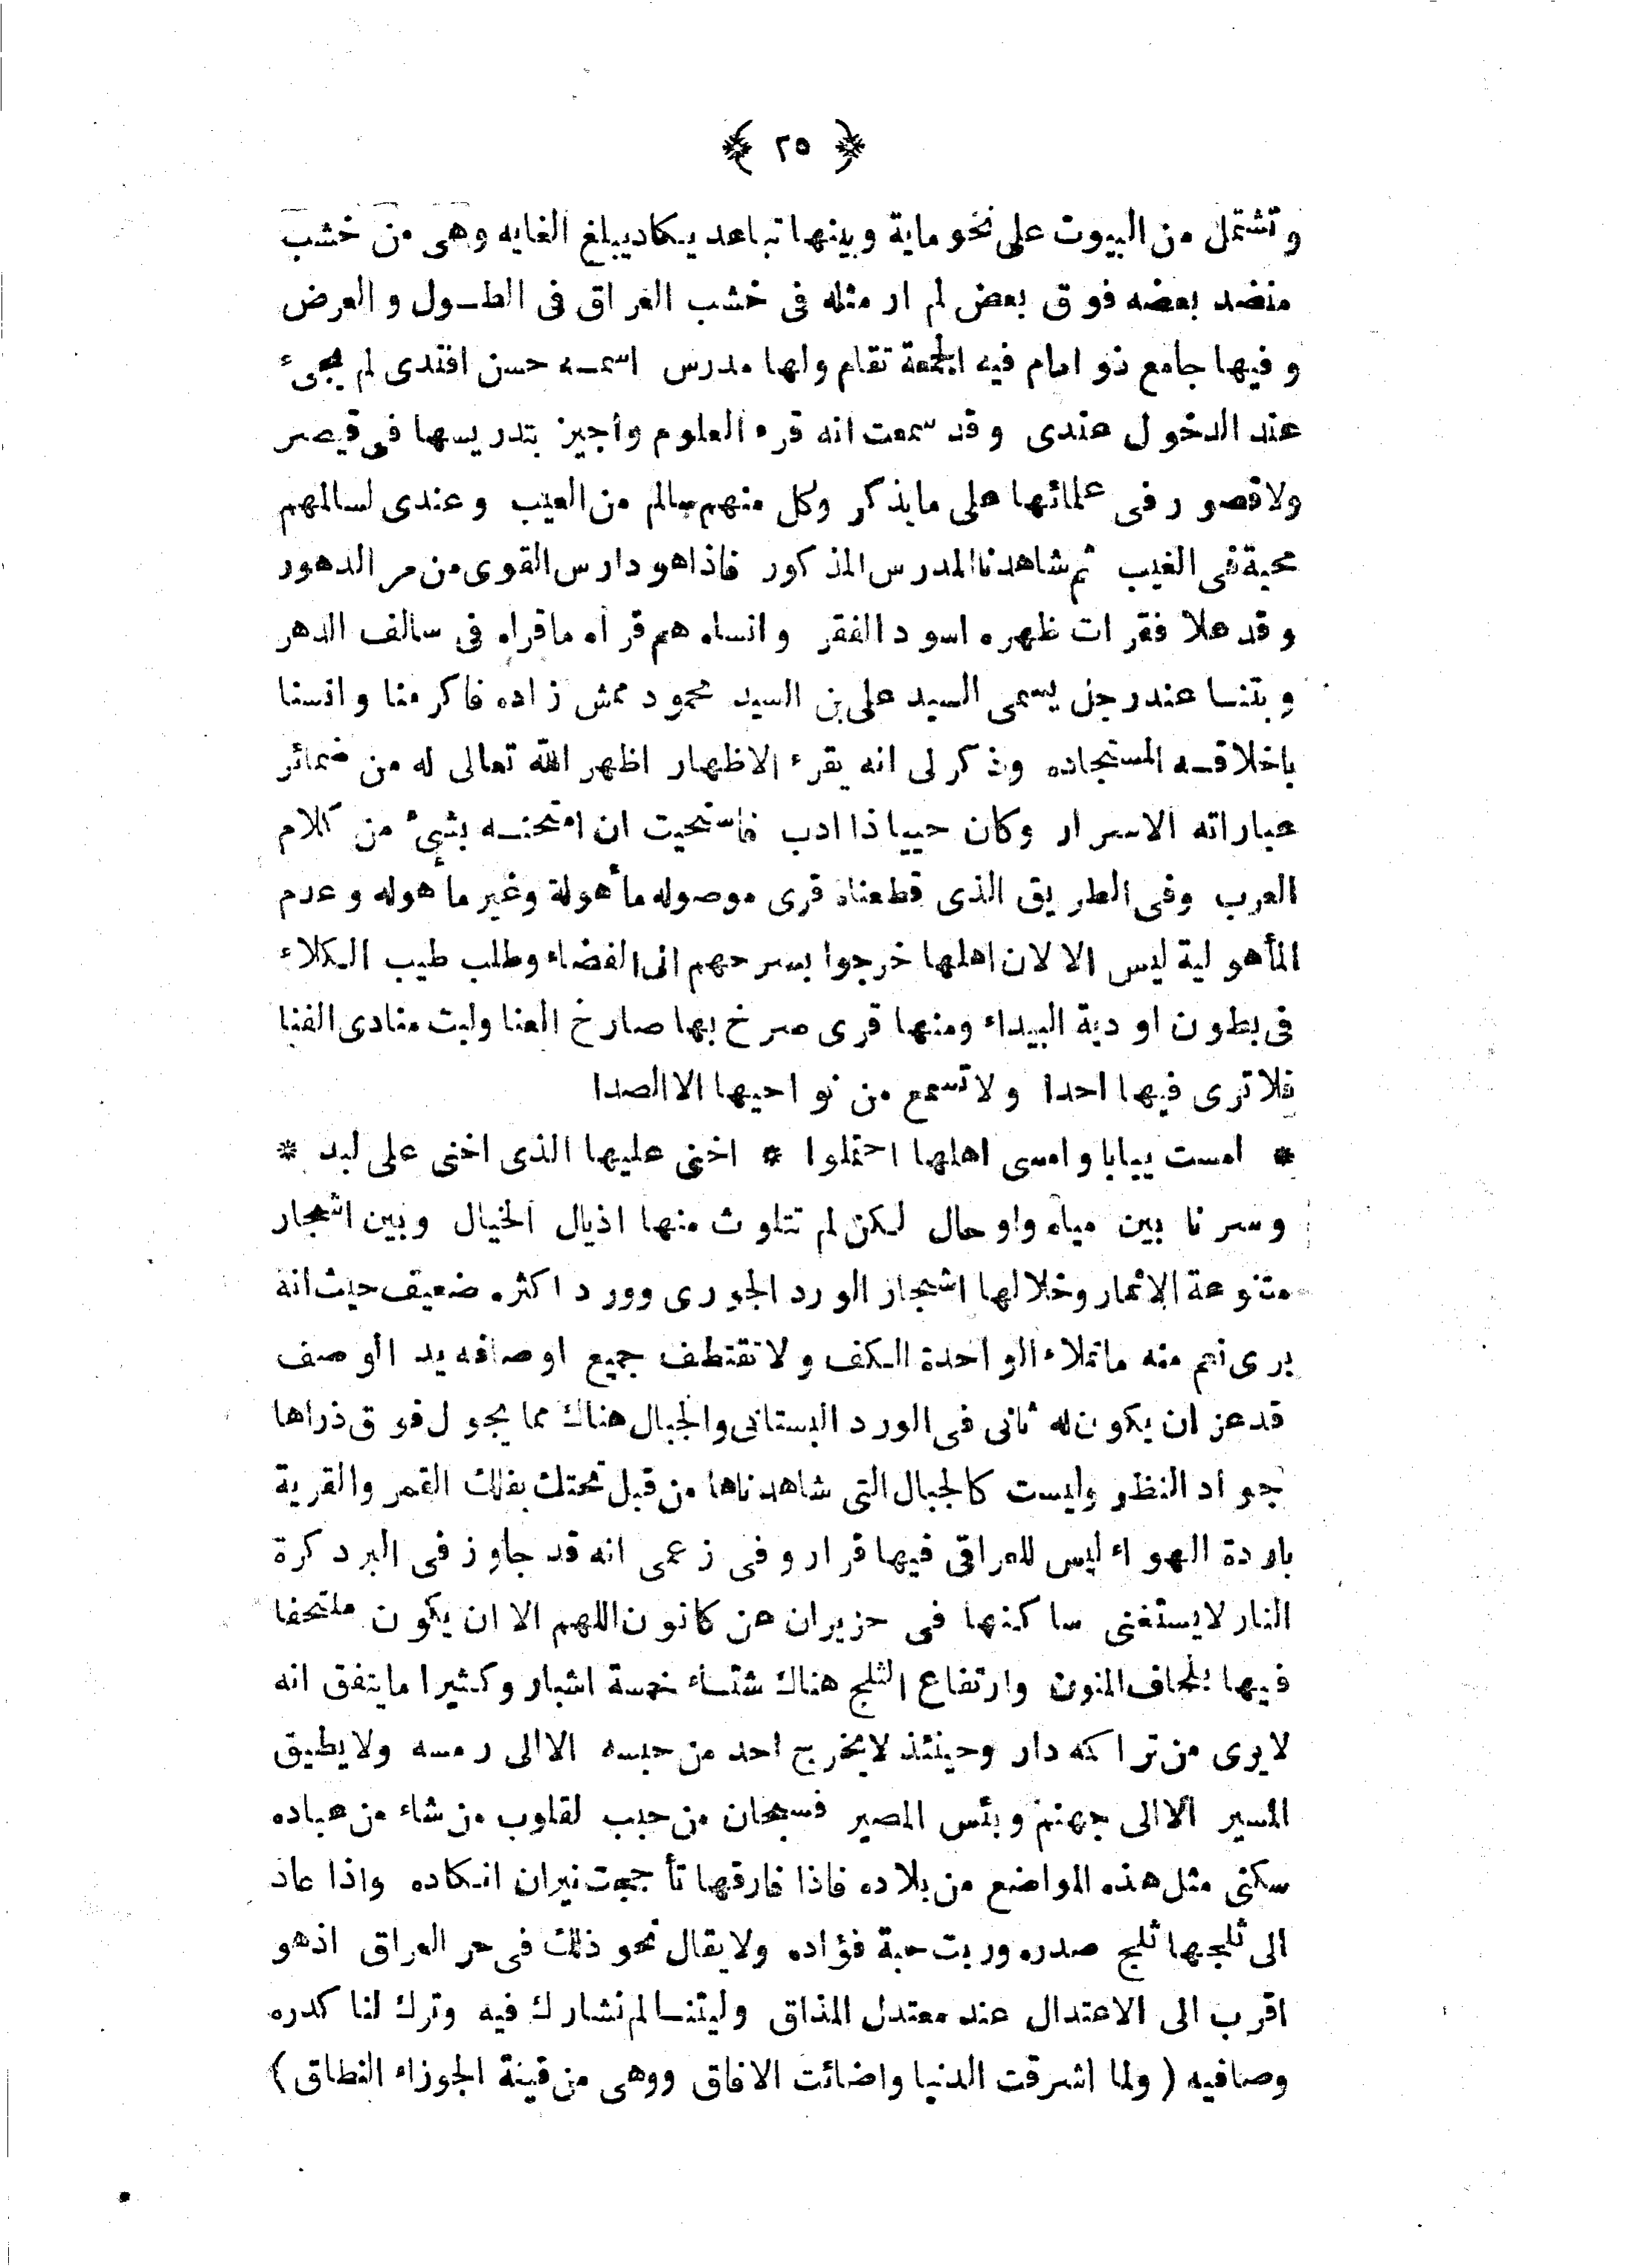 ﴿ ٢٥ ﴾
وتشتمل من البيوت على نحو ماية وبينها تباعد يكاد يبلغ الغايه وهى من خشب
منضد بعضه فوق بعض لم ار مثله فى خشب العراق فى الطول والعرض
وفيها جامع ذو امام فيه الجمعة تقام ولها مدرس اسمه حسن افندى لم يجئ
عند الدخول عندى وقد سمعت انه قرء العلوم واجيز بتدريسها فى قيصر
ولا قصور فى علمائها على ما يذكر وكل منهم سالم من العيب وعندى لسالمهم
محبة فى الغيب ثم شاهدنا المدرس المذكور فاذا هو دارس القوى من مر الدهور
وقد علا فقرات ظهره اسود الفقر وانساه هم قراه ما قراه فى سالف الدهر
وبتنا عند رجل يسمى السيد على بن السيد محمود ممش زاده فاكرمنا وانسنا
باخلاقه المستجاده وذكر لى انه يقرء الاظهار اظهر الله تعالى له من ضمائر
عباراته الاسرار وكان حييا ذا ادب فاستحيت ان امتحنه بشئ من كلام
العرب وفى الطريق الذى قطعناه قرى موصوله مأهولة وغير مأهوله وعدم
المأهولية ليس الا لان اهلها خرجوا بسرحهم الى الفضاء وطلب طيب الكلاء
فى بطون اودية البيداء ومنها قرى صرخ بها صارخ العنا ولبت منادى الفنا
فلا ترى فيها احدا ولا تسمع من نواحيها الا الصدا
* امست يبابا وامسى اهلها احتملوا * اخنى عليها الذى اخنى على لبد *
وسرنا بين مياه واوحال لكن لم تتلوث منها اذيال الخيال وبين اشجار
متنوعة الاثمار وخلالها اشجار الورد الجورى وورد اكثره ضعيف حيث انه
برى نعم منه ما تملاء الواحدة الكف ولا تقتطف جميع اوصافه يد الوصف
قد عز ان يكون له ثانى فى الورد البستانى والجبال هناك مما يجول فوق ذراها
جواد النظر وليست كالجبال التى شاهدناها من قبل تحتك بفلك القمر والقرية
باردة الهواء ليس للعراقى فيها قرار وفى زعمى انه قد جاوز فى البرد كرة
النار لا يستغنى ساكنها فى حزيران عن كانون اللهم الا ان يكون ملتحفا
فيها بلحاف المنون وارتفاع الثلج هناك شتاء خمسة اشبار وكثيرا ما يتفق انه
لا يرى من تراكمه دار وحينئذ لا يخرج احد من حبسه الا الى رمسه ولا يطيق
المسير الا الى جهنم وبئس المصير فسبحان من حبب لقلوب من شاء من عباده
سكنى مثل هذه المواضع من بلاده فاذا فارقها تأججت نيران انكاده واذا عاد
الى ثلجها ثلج صدره وربت حبة فؤاده ولا يقال نحو ذلك فى حر العراق اذ هو
اقرب الى الاعتدال عند معتدل المذاق وليتنا لم نشارك فيه وترك لنا كدره
وصافيه ( ولما اشرقت الدنيا واضائت الافاق ووهى من قينة الجوزاء النطاق )